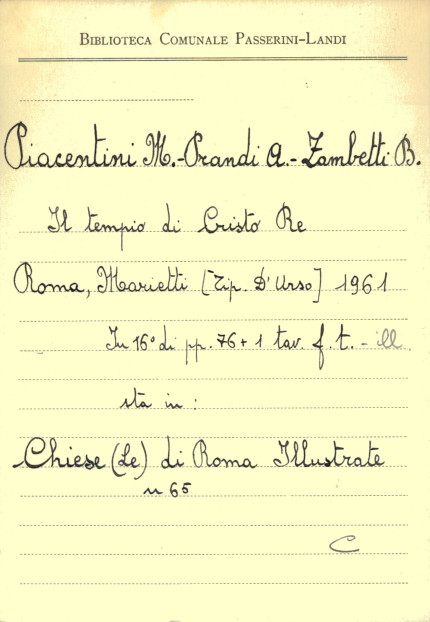 BIBLIOTECA COMUNALE PASSERINI-LANDI
Piacentini M.-Prandi A.-Zambetti B.
Il tempio di Cristo Re
Roma, Marietti [Tip. D'Urso] 1961
In 16° di pp. 76 + 1 tav. f. t. - ill
sta in :
Chiese (Le) di Roma Illustrate
n 65
C